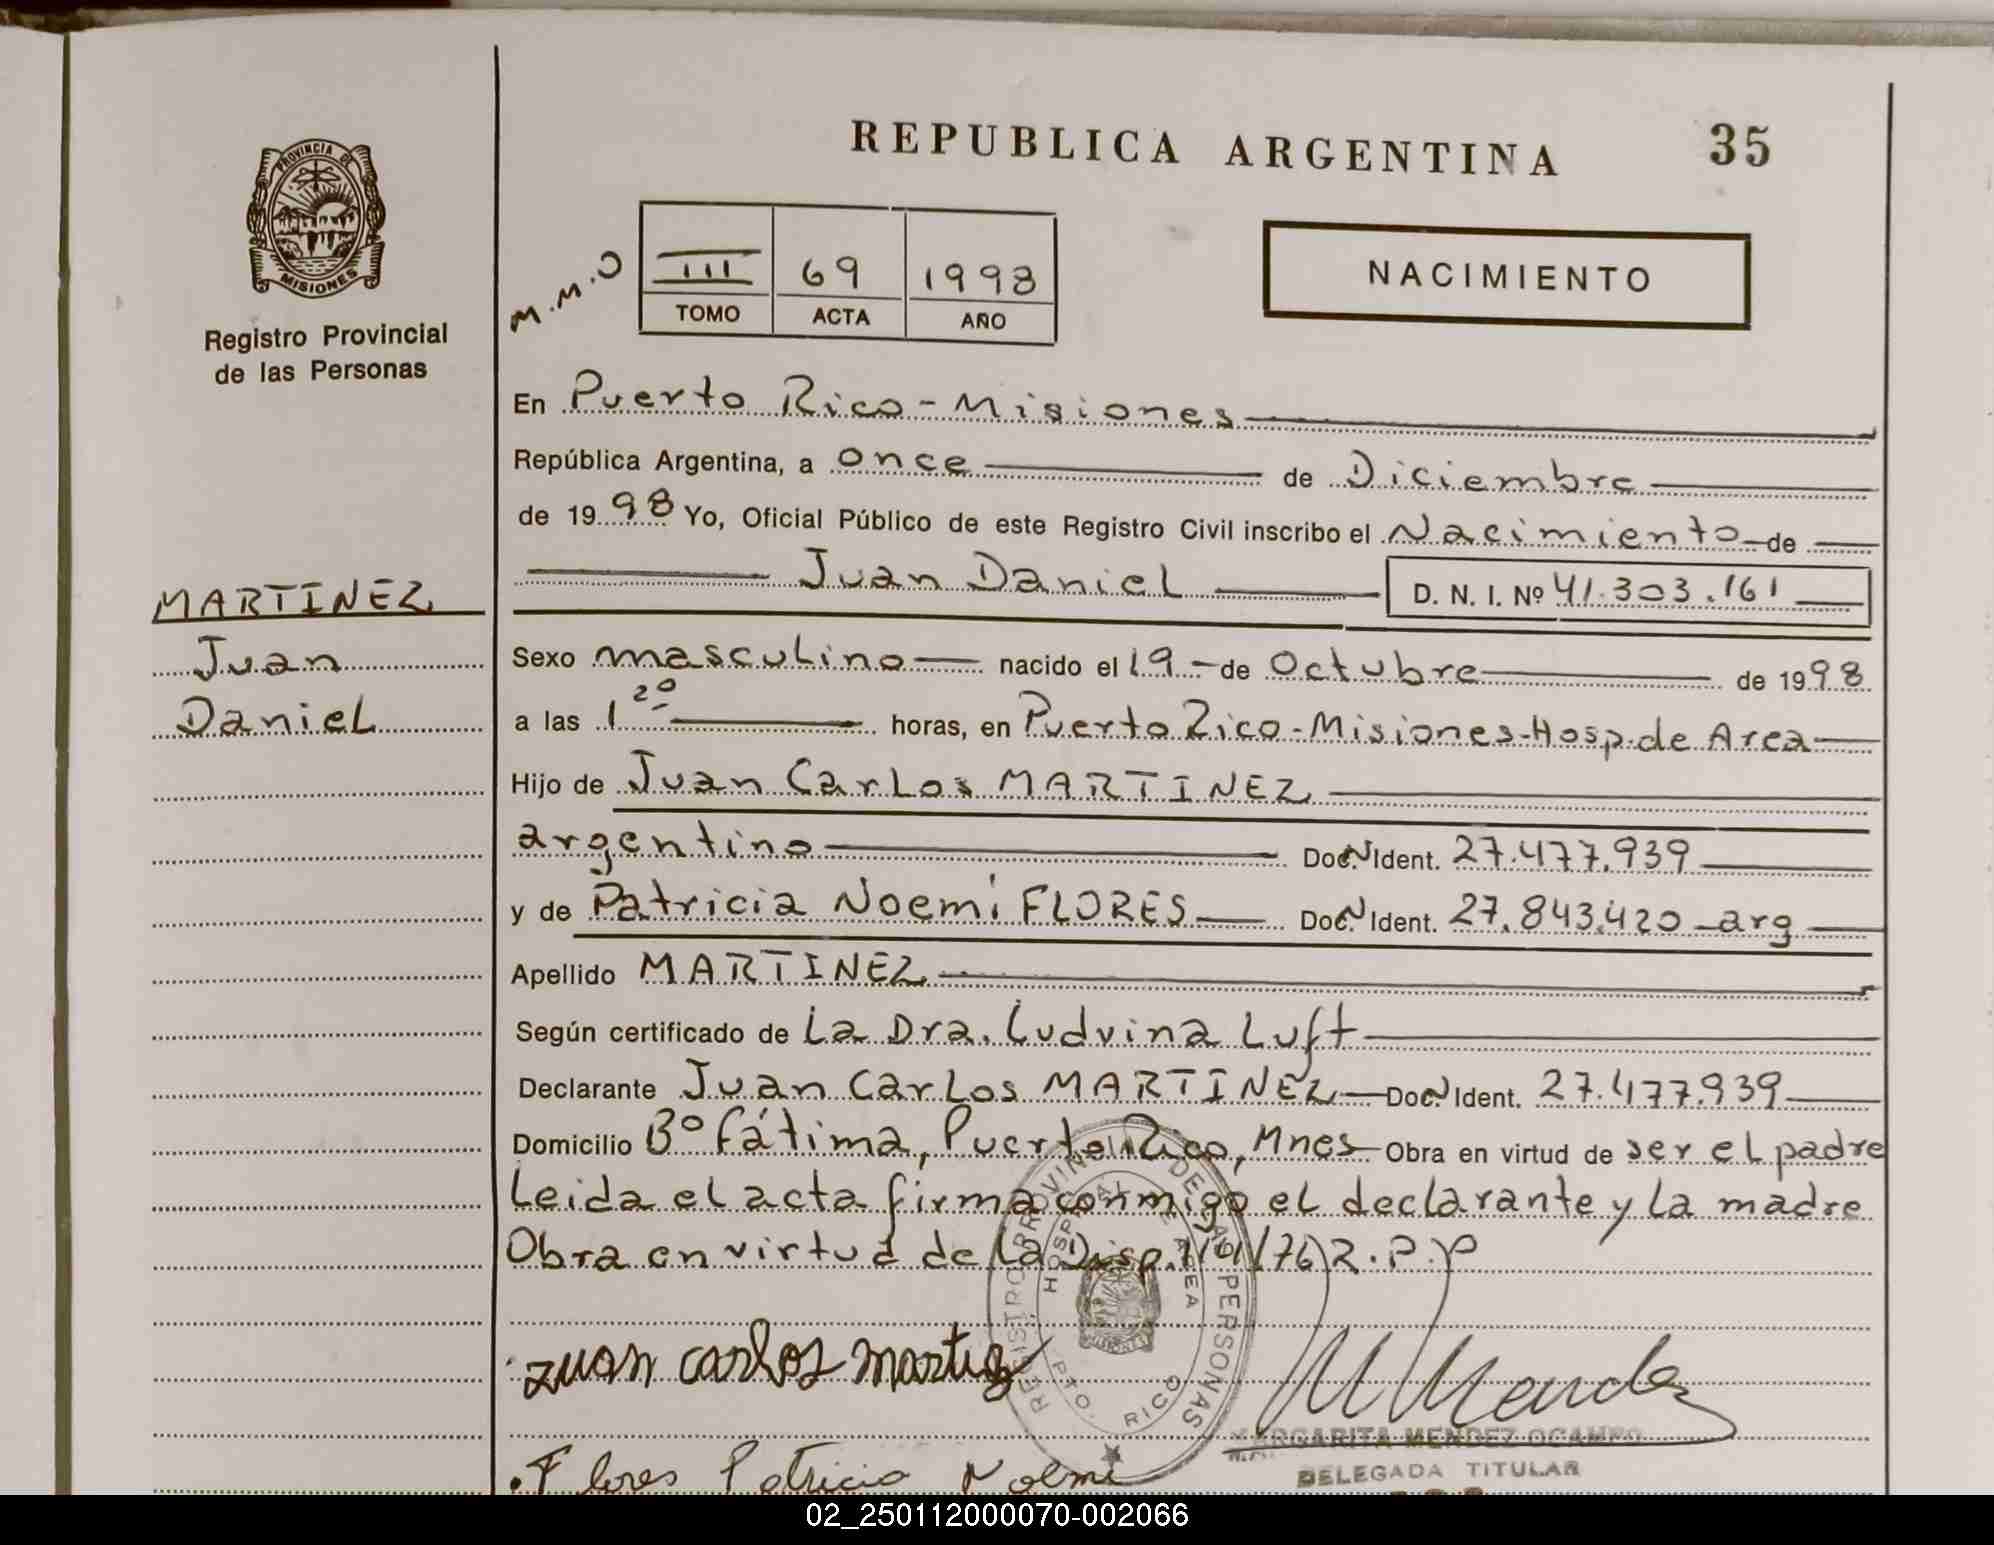 REPUBLICA ARGENTINA 35
PROVINCIA DE MISIONES
Registro Provincial
de las Personas
M.M.O
III 69 1998
TOMO ACTA AÑO
NACIMIENTO
En Puerto Rico - Misiones
República Argentina, a once de Diciembre
de 1998 Yo, Oficial Público de este Registro Civil inscribo el Nacimiento de
Juan Daniel D. N. I. Nº 41.303.161
MARTINEZ
Juan
Daniel
Sexo masculino nacido el 19 de Octubre de 1998
a las 1 20 horas, en Puerto Rico - Misiones - Hosp. de Area
Hijo de Juan Carlos MARTINEZ
argentino Doc. N Ident. 27.477.939
y de Patricia Noemí FLORES Doc. N Ident. 27.843.420 - arg
Apellido MARTINEZ
Según certificado de La Dra. Ludvina Luft
Declarante Juan Carlos MARTINEZ Doc. N Ident. 27.477.939
Domicilio Bº Fátima, Puerto Rico, Mnes Obra en virtud de ser el padre
Leida el acta firma conmigo el declarante y la madre
Obra en virtud de la Disp. /76 R.P.P
REGISTRO PROVINCIAL DE LAS PERSONAS
HOSPITAL DE AREA
PTO. RICO
Juan Carlos Martinez
M Mendez
MARGARITA MENDEZ OCAMPO
DELEGADA TITULAR
Flores Patricia Noemi
02_250112000070-002066